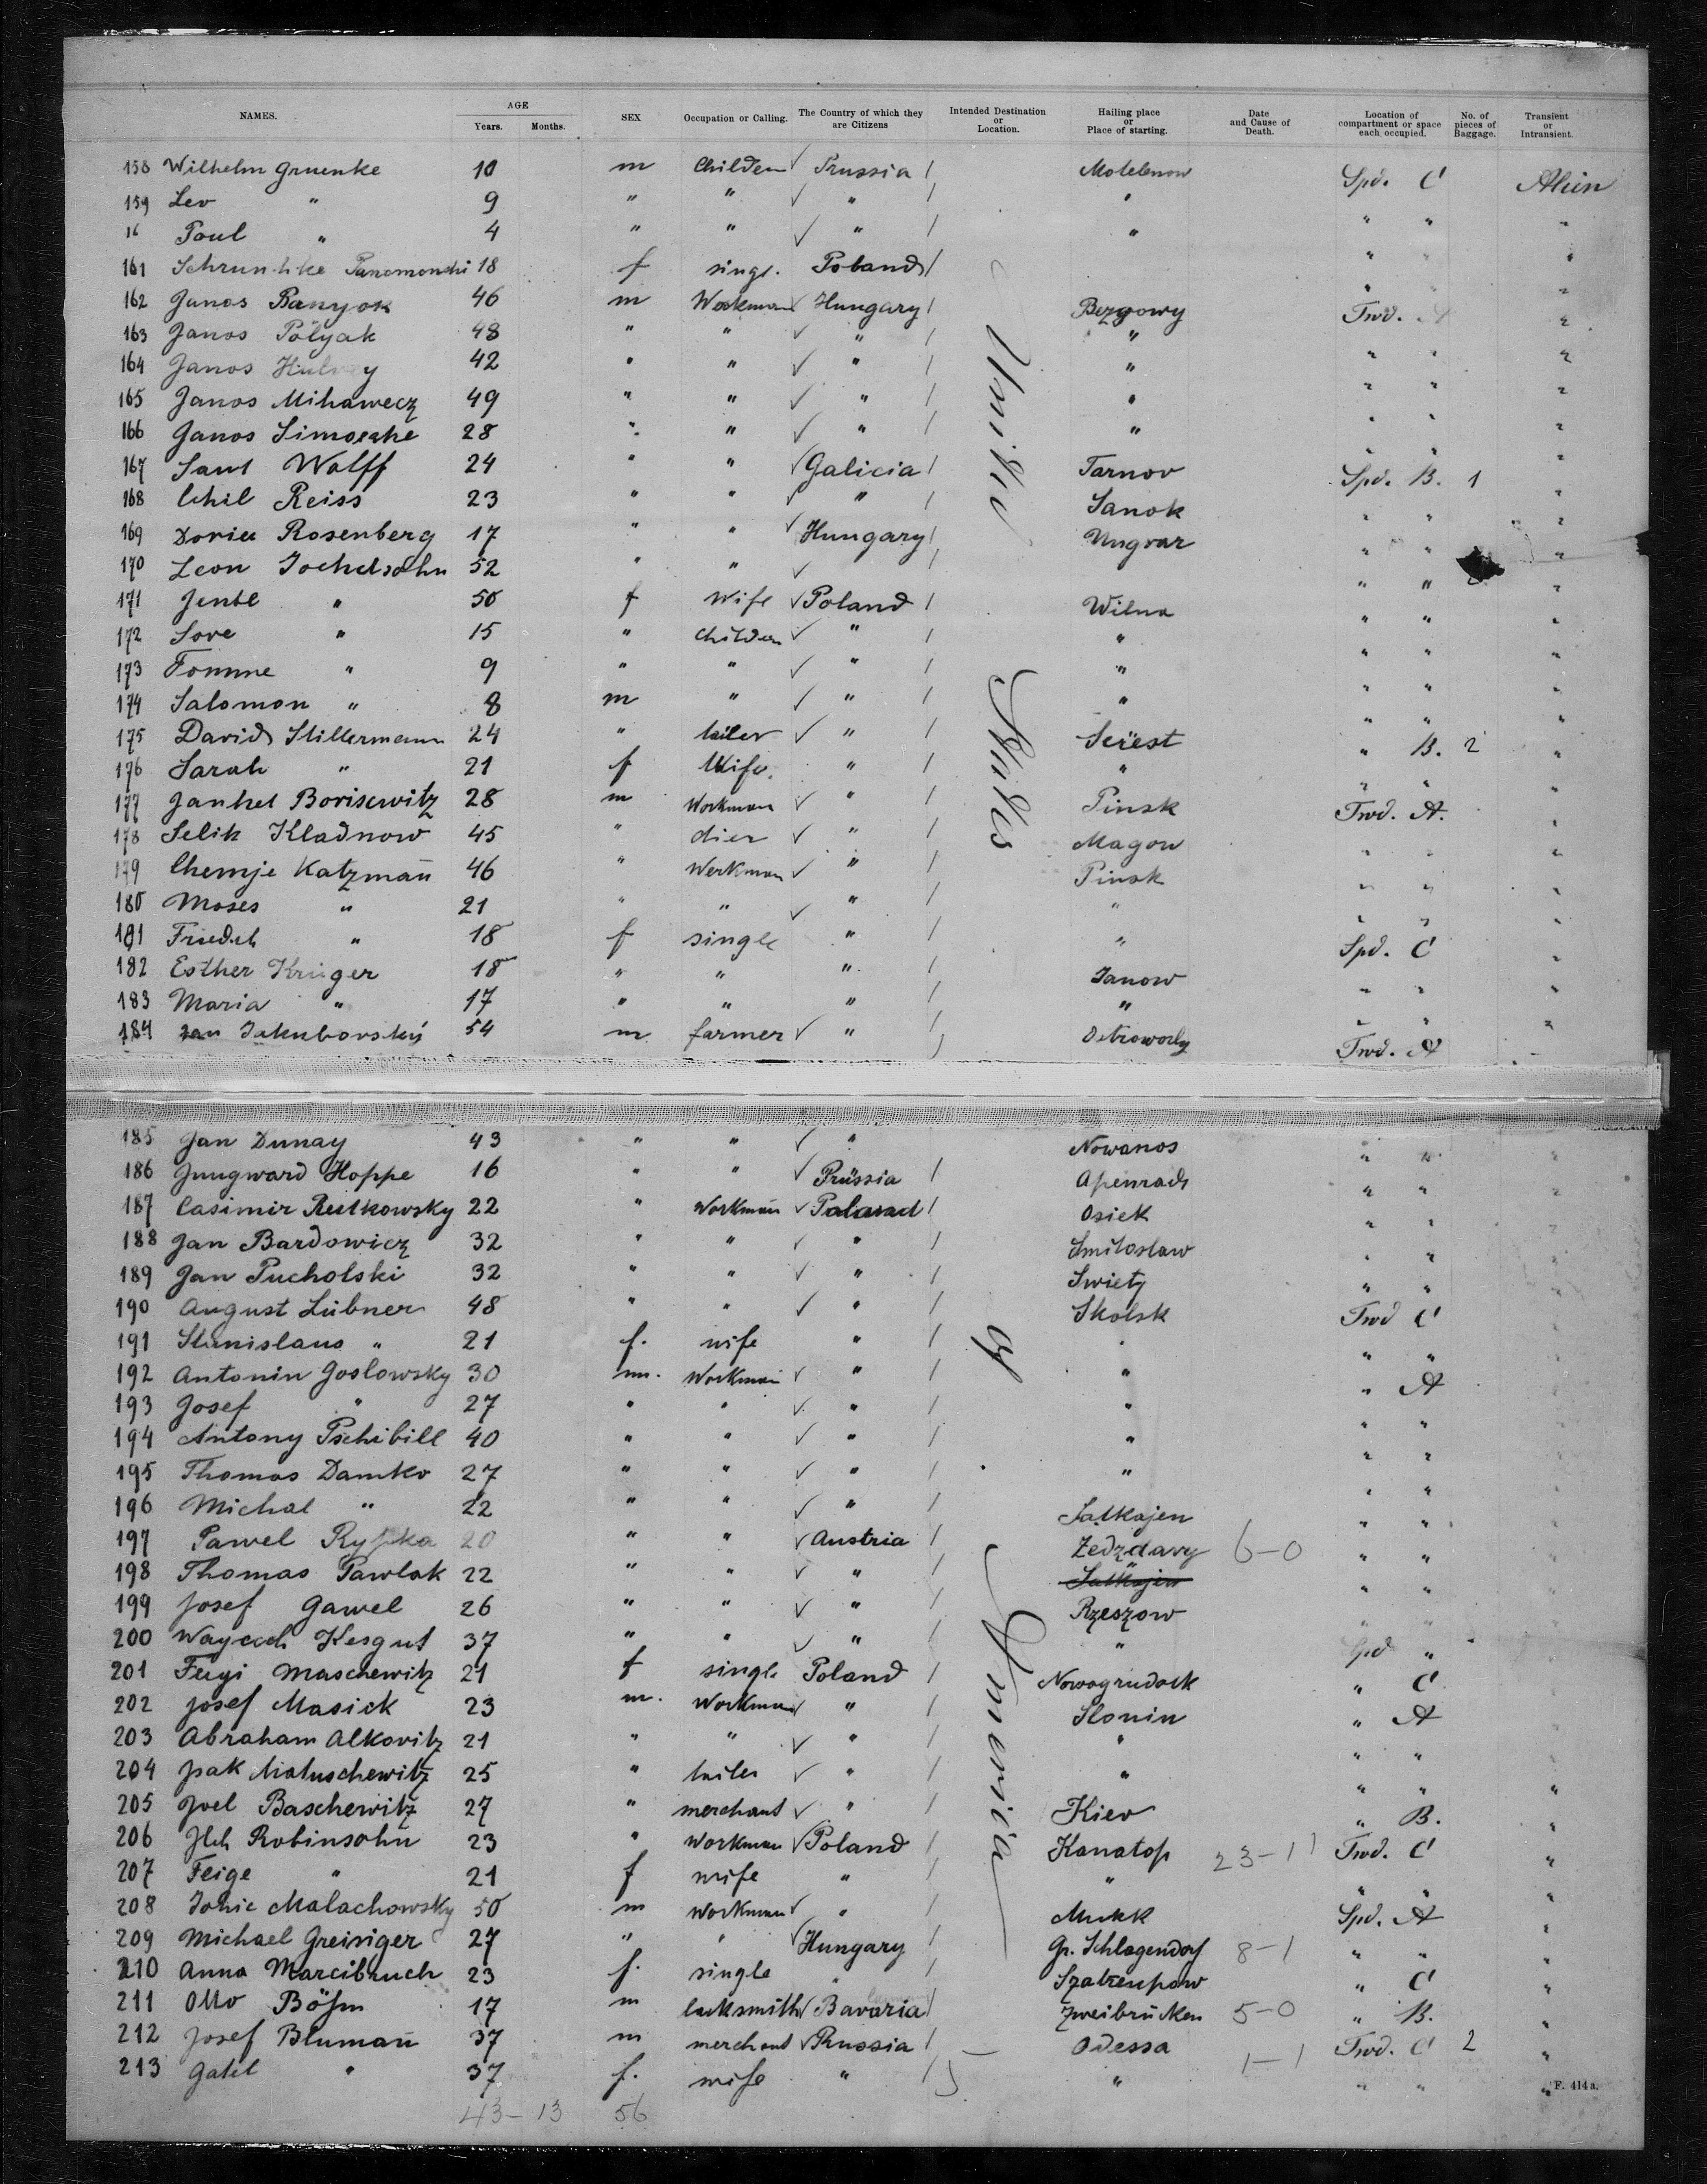 NAMES. AGE Years. Months. SEX Occupation or Calling. The Country of which they are Citizens Intended Destination or Location. Hailing place or Place of starting. Date and Cause of Death. Location of compartment or space each occupied. No. of pieces of Baggage. Transient or Intransient.
158 Wilhelm Gruenke 10 m Childen ✓ Prussia / Motelenow Spd. C
159 Leo " 9 " " ✓ " / " " " "
16 Paul " 4 " " ✓ " / " " " "
161 18 f singl. Poland / " " "
162 Janos Banyok 46 m Workman ✓ Hungary / Bezgowy Twd. A "
163 Janos Pólyak 48 " " ✓ " / " " " "
164 Janos 42 " " ✓ " / " " " "
165 Janos Mihawecz 49 " " ✓ " / " " " "
166 Janos 28 " " ✓ " / " " " "
167 Saul Wolff 24 " " ✓ Galicia / Tarnov Spd. B. 1 "
168 Chil Reiss 23 " " ✓ " / Sanok " " "
169 Rosenberg 17 " " ✓ Hungary / Ungvar " " "
170 Leon Jochelsohn 52 " " ✓ " " "
171 Jentl " 50 f Wife ✓ Poland / Wilna " " "
172 Sore " 15 " Childen ✓ " / " " " "
173 " 9 " " ✓ " / " " " "
174 Salomon " 8 m " ✓ " / " " " "
175 David Stillermann 24 " tailer ✓ " / Serest " B. 2 "
176 Sarah " 21 f Wife. " / " " " "
177 Jankel Borisewitz 28 m Workman ✓ " / Pinsk Twd. A. "
178 Selik Kladnow 45 " dier ✓ " / Magow " " "
179 Chemje Katzmañ 46 " Werkman ✓ " / Pinsk " " "
180 Moses " 21 " " ✓ " / " " " "
181 " 18 f single " / " Spd. C "
182 Esther Krüger 18 " " " / Janow " " "
183 Maria " 17 " " " / " " " "
184 Jan Jakuborský 54 m farmer ✓ " / Ostroworly Twd. A
185 Jan Dunay 43 " " ✓ " Nowanos " " "
186 Jungward Hoppe 16 " " ✓ Prüssia / Apenrade " " "
187 Casimir Rutkowsky 22 " Workman ✓ Poland / Osiek " " "
188 Jan Bardowicz 32 " " ✓ " / Smiloslaw " " "
189 Jan Pucholski 32 " " ✓ " / Swiety " " "
190 August Lübner 48 " " ✓ " / Skolsk Twd C "
191 Stanislaus " 21 f. wife " / " " " "
192 Antonin Goslowsky 30 m. Workman ✓ " / " " A "
193 Josef " 27 " " ✓ " / " " " "
194 Antony Pschibill 40 " " ✓ " / " " " "
195 Thomas Damko 27 " " ✓ " / " " " "
196 Michal " 22 " " ✓ " / Satkajen " " "
197 Pawel Rypka 20 " " ✓ Austria / Zedzdawy 6-0 " " "
198 Thomas Pawlak 22 " " ✓ " / Satkajen " " "
199 Josef Gawel 26 " " ✓ " / Rzeszow " " "
200 Kesgut 37 " " ✓ " / " Spd " "
201 Feigi Maschewitz 21 f single Poland / Nowogrudock " C "
202 Josef Masick 23 m. Workman ✓ " / Slonin " A "
203 Abraham Alkovitz 21 " " ✓ " / " " " "
204 Jsak Matuschewitz 25 " tailer ✓ " / " " " "
205 Joel Baschewitz 27 " merchant ✓ " / Kiev " B. "
206 Robinsohn 23 " Workman ✓ Poland / Kanatop 23-11 Twd. C "
207 Feige " 21 f wife " / " " " "
208 Malachowsky 50 m Workman ✓ " / Spd. A "
209 Michael Greisiger 27 " " ✓ Hungary / Gr. Schlagendorf 8-1 " " "
210 Anna Marcibruch 23 f. single " / " C "
211 Otto Böhm 17 m locksmith ✓ Bavaria / Zweibrücken 5-0 " B. "
212 Josef Blumañ 37 m merchant ✓ Russia / Odessa 1-1 Twd. C 2 "
213 Gatel " 37 f. wife " / " " " "
43-13 56
United States of America
Alien
F. 414a.